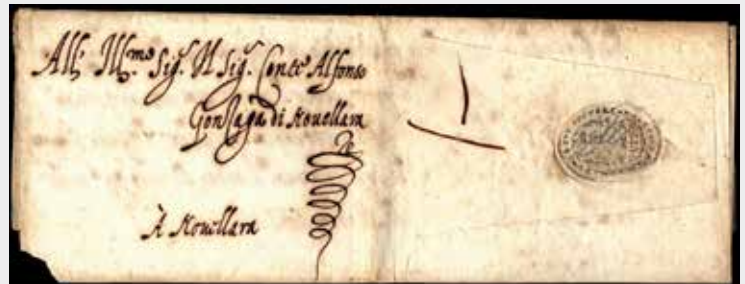 All' Ill.mo Sig.r Il Sig.r Conte Alfonso
Gonzaga di Novellara
A Novellara